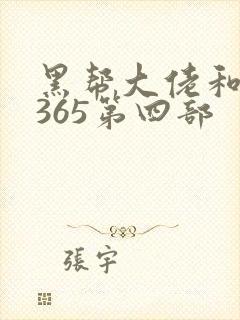 黑帮大佬和
365第四部
張宇